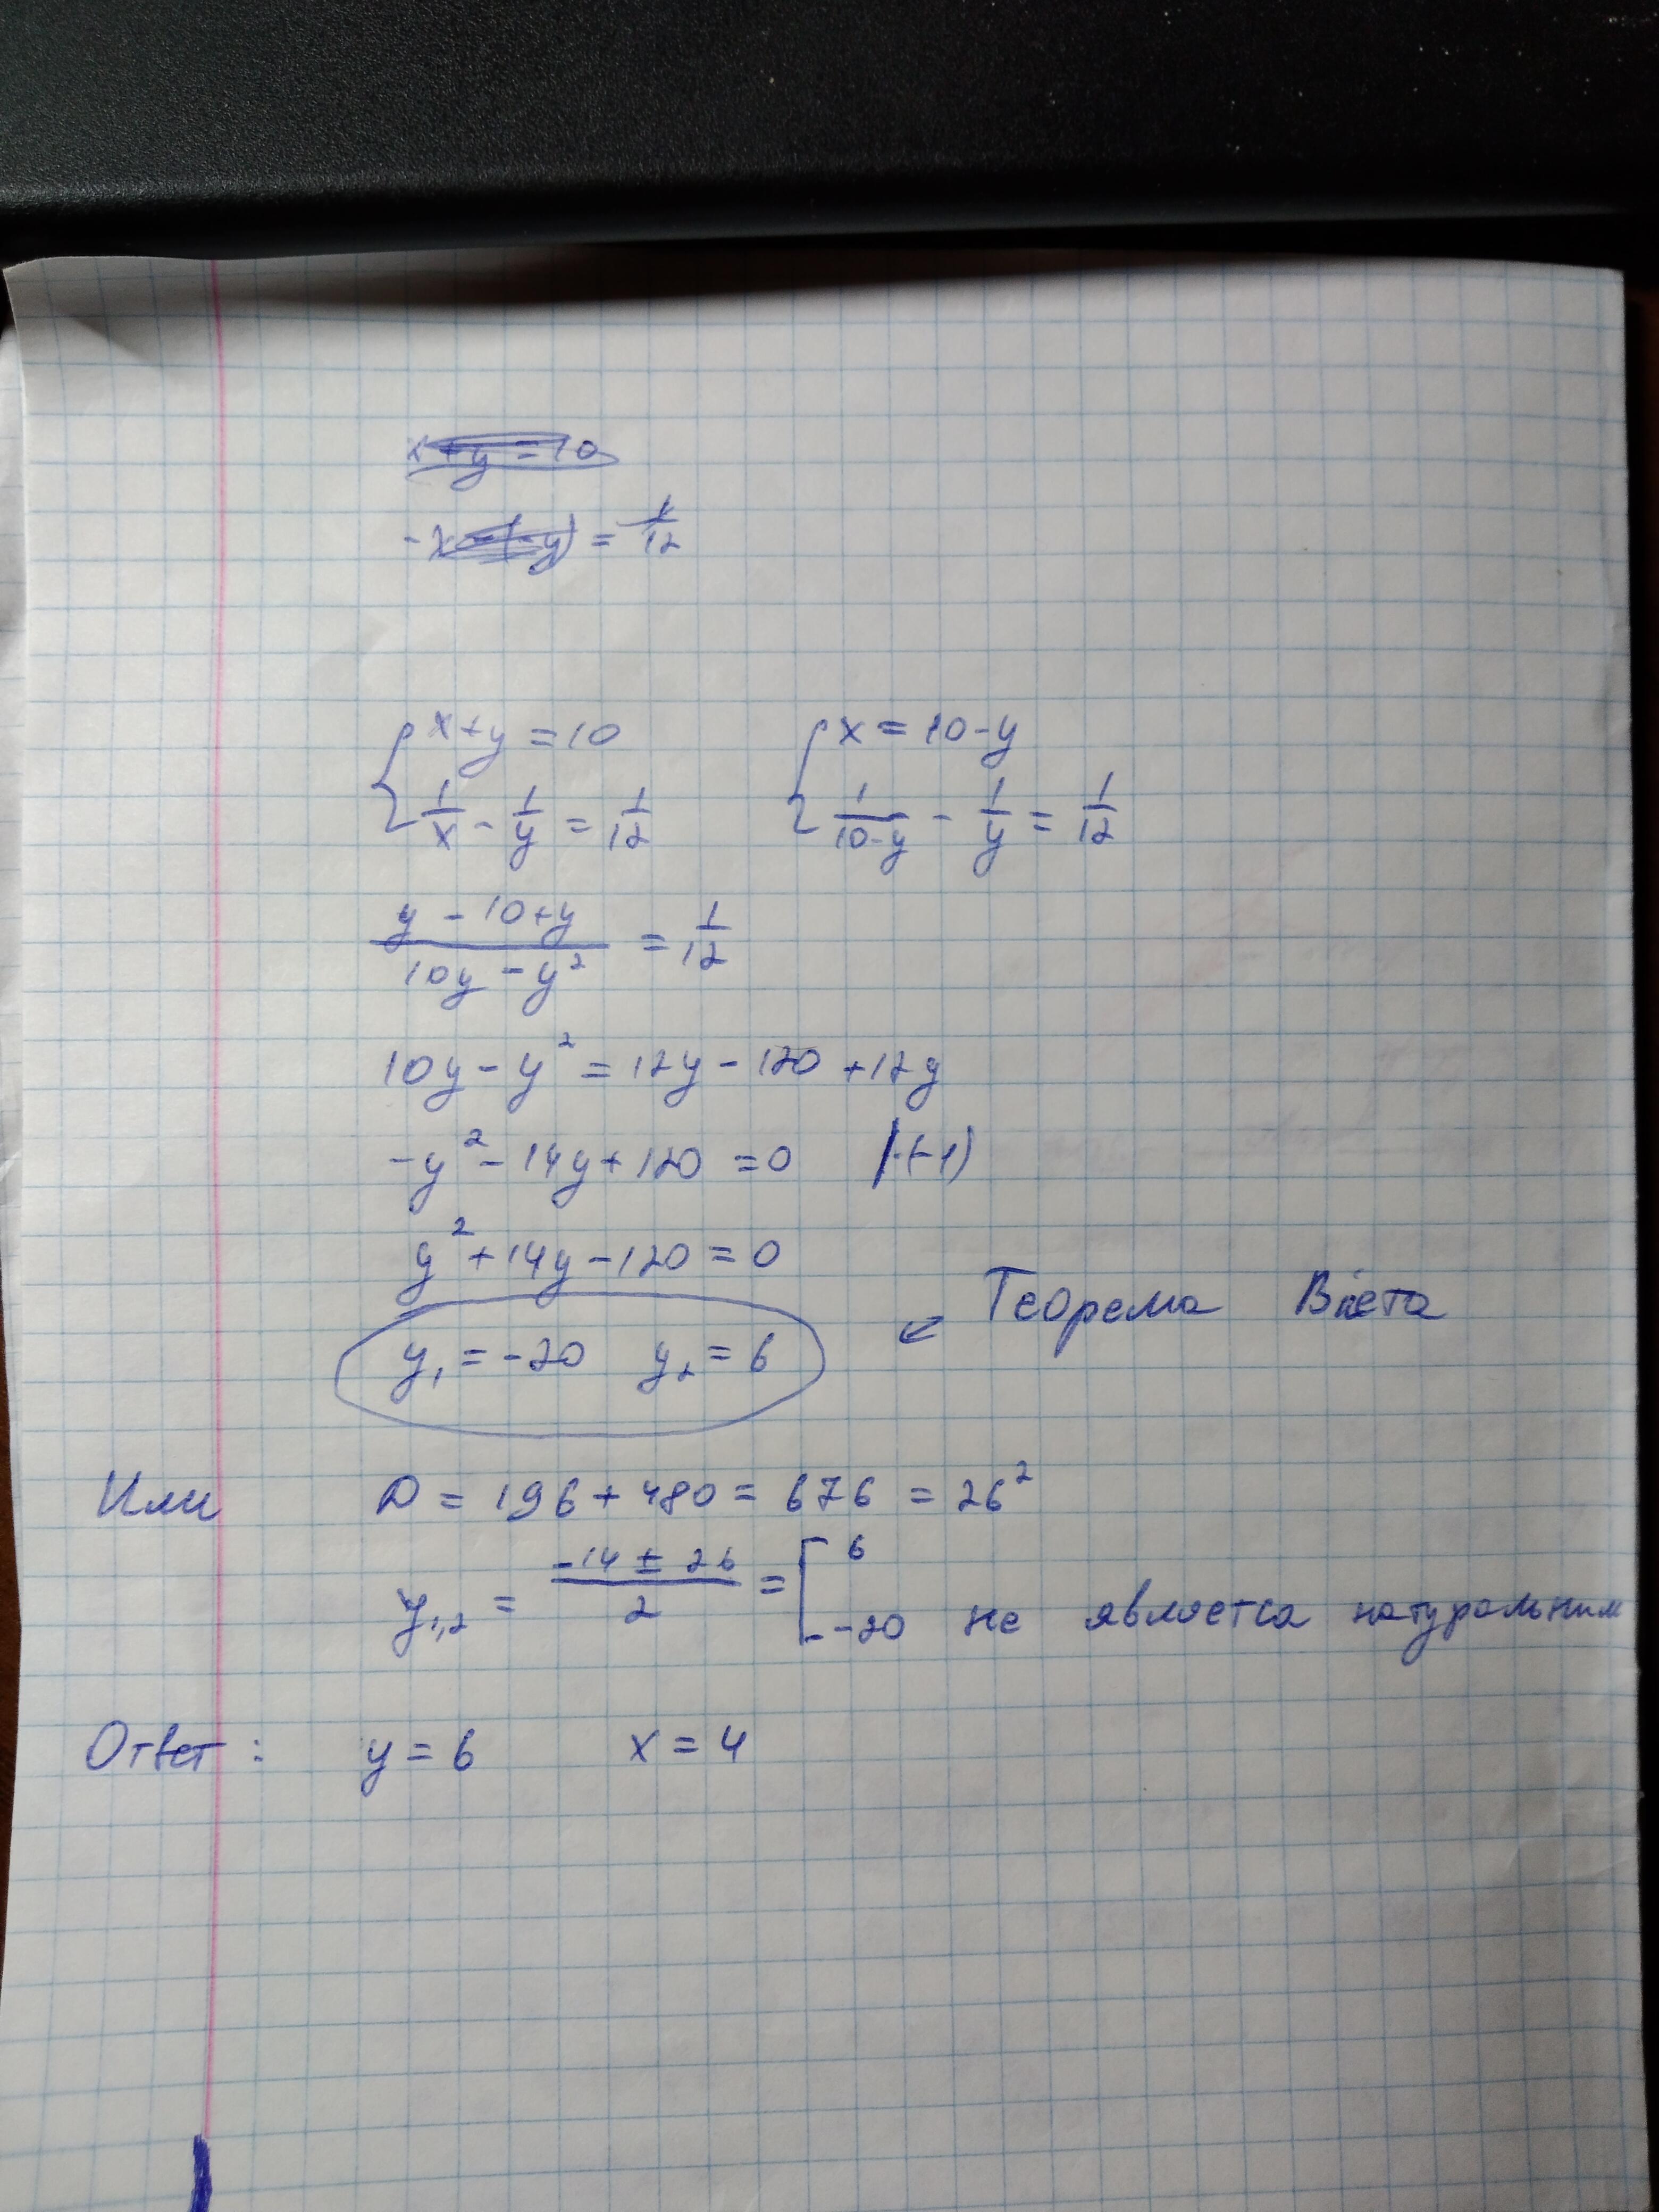 x+y=10
-x-(-y)=1/12
{x+y=10 {x=10-y
1/x - 1/y = 1/12 1/(10-y) - 1/y = 1/12
(y-10+y)/(10y-y²) = 1/12
10y-y²=12y-120+12y
-y²-14y+120=0 |·(-1)
y²+14y-120=0
y₁=-20 y₂=6 ↙ Теорема Виета
Или D=196+480=676=26²
y₁,₂ = (-14±26)/2 = [6
-20 не является натуральним
Ответ: y=6 x=4